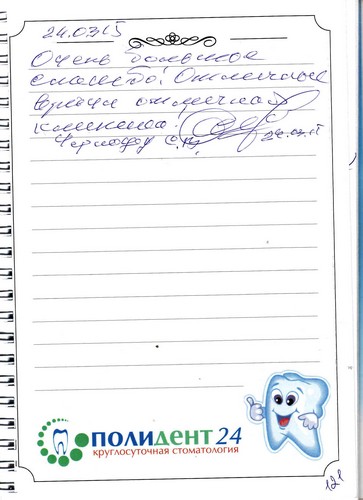 24.03.15
Очень большое
спасибо! Отличные
врачи отличная
клиника!
24.03.15
ПОЛИДЕНТ 24
круглосуточная стоматология